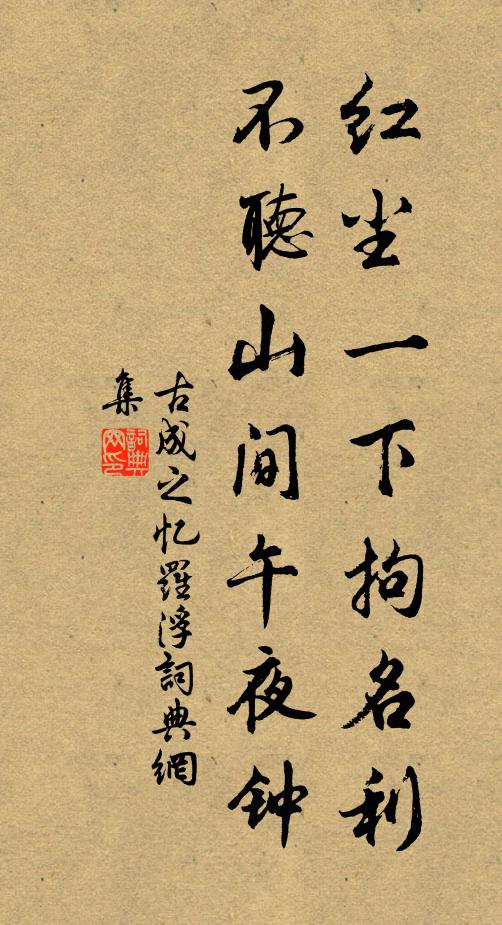 红尘一下拘名利
不聽山间午夜钟
古成之忆羅浮詞典網
集
詞典
网印